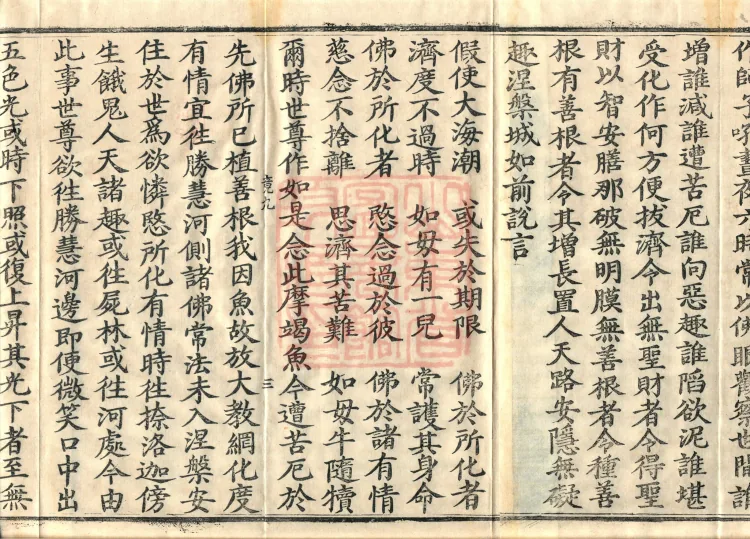 晝夜六時常以佛眼觀察世間誰
增誰減誰遭苦厄誰向惡趣誰陷欲泥誰堪
受化作何方便拔濟令出無聖財者令得聖
財以智安膳那破無明膜無善根者令種善
根有善根者令其增長置人天路安隱無礙
趣涅槃城如前說言
假使大海潮　或失於期限　佛於所化者
濟度不過時　如母有一兒　常護其身命
佛於所化者　愍念過於彼　佛於諸有情
慈念不捨離　思濟其苦難　如母牛隨犢
爾時世尊作如是念此摩竭魚今遭苦厄於
竟九　三
先佛所已植善根我因魚故放大教網化度
有情宜徃勝慧河側諸佛常法未入涅槃安
住於世爲欲憐愍所化有情時徃捺洛迦傍
生餓鬼人天諸趣或徃屍林或徃河處今由
此事世尊欲徃勝慧河邊即便微笑口中出
五色光或時下照或復上昇其光下者至無